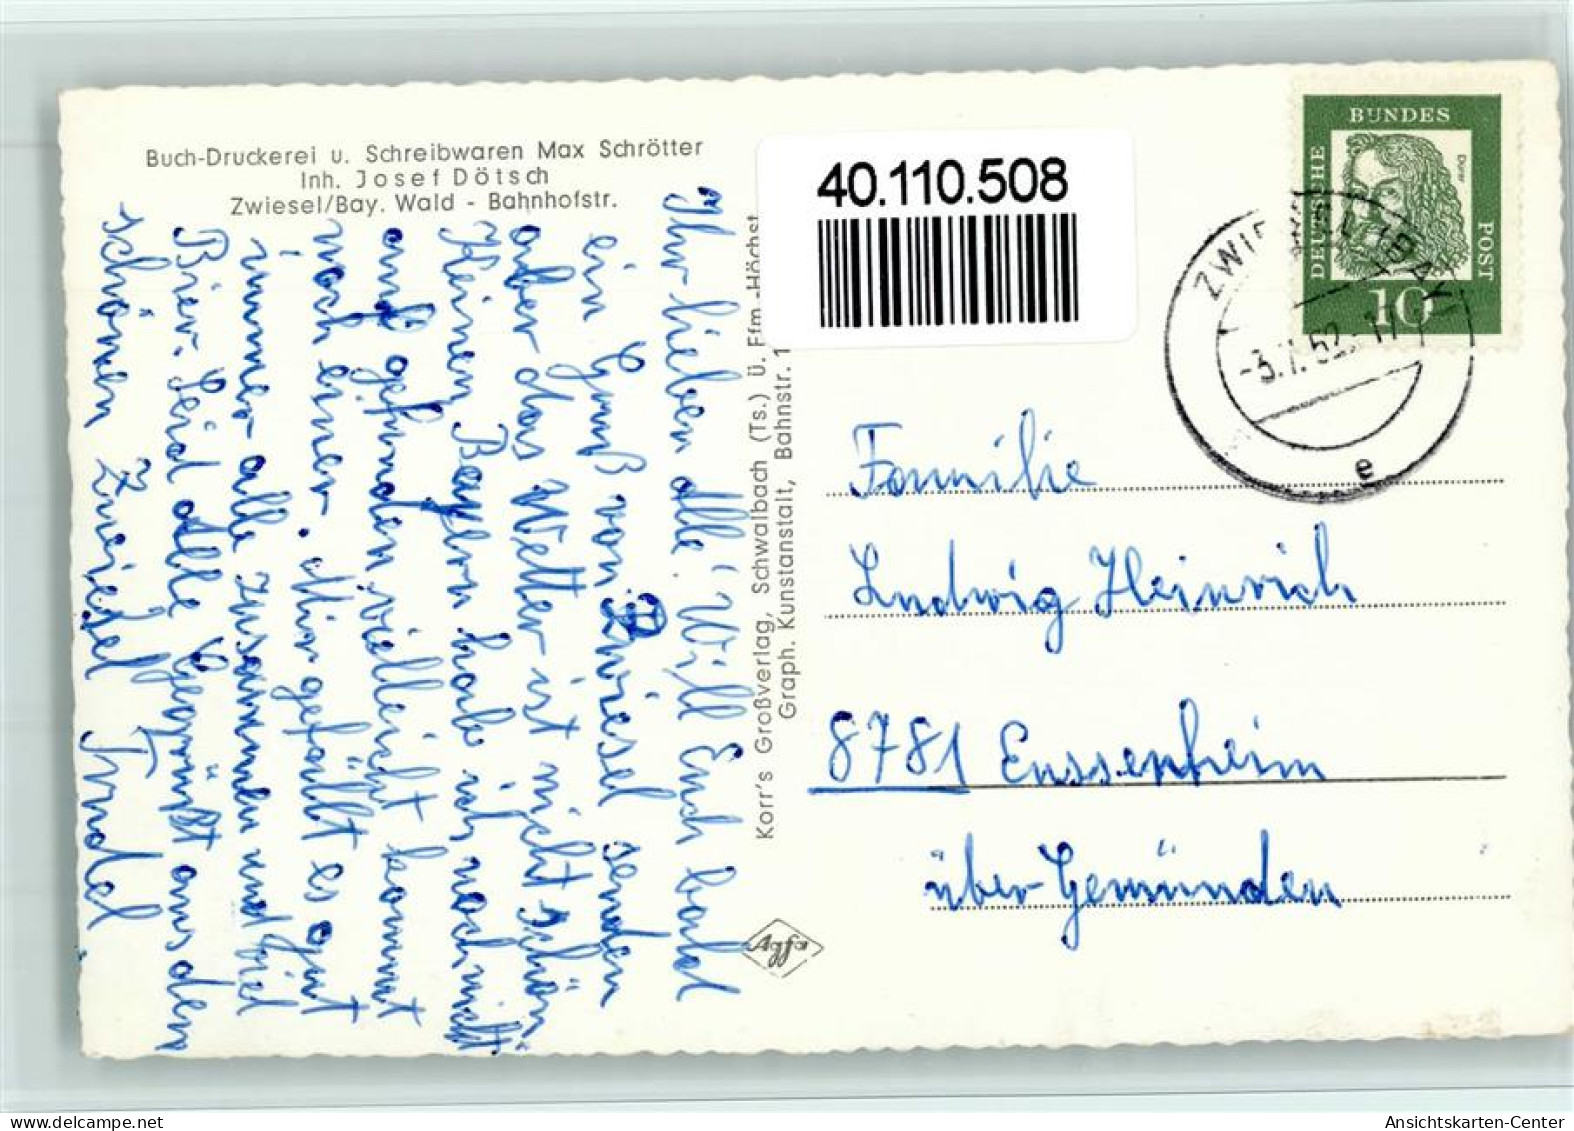 Buch-Druckerei u. Schreibwaren Max Schrötter
Inh. Josef Dötsch
Zwiesel/Bay. Wald - Bahnhofstr.
Ihr lieben alle! Will Euch bald
ein Gruß von Zwiesel senden
aber das Wetter ist nicht schön
Keinen Bayern habe ich noch nicht
auf gefunden vielleicht kommt
noch einer. Mir gefällt es gut
immer alle zusammen und viel
Bier. Seid alle Gegrüßt aus den
schönen Zwiesel Trudel
Korr's Großverlag, Schwalbach (Ts.) Ü. Ffm.-Höchst
Graph. Kunstanstalt, Bahnstr. 1
40.110.508
DEUTSCHE
BUNDES
POST
Dürer
10
ZWIESEL (BAY)
e
Familie
Ludwig Heinrich
8781 Eussenheim
über Gemünden
Agfa
delcampe.net
Ansichtskarten-Center